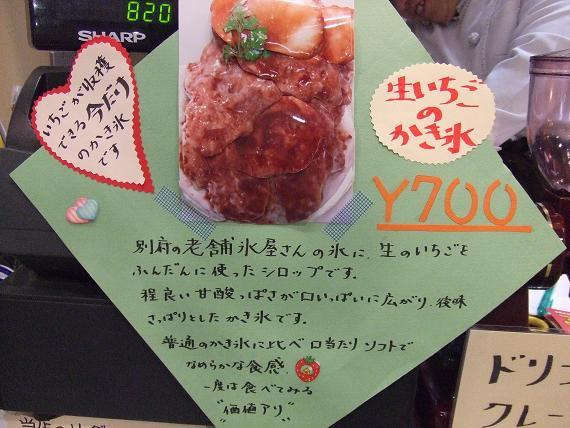 820
SHARP
いちごが収穫
できる今だけ
のかき氷
です
生いちご
の
かき氷
¥700
別府の老舗氷屋さんの氷に、生のいちごを
ふんだんに使ったシロップです。
程良い甘酸っぱさが口いっぱいに広がり、後味
さっぱりとしたかき氷です。
普通のかき氷に比べ口当たりソフトで
なめらかな食感、
一度は食べてみる
"価値アリ"
ドリ
クレー